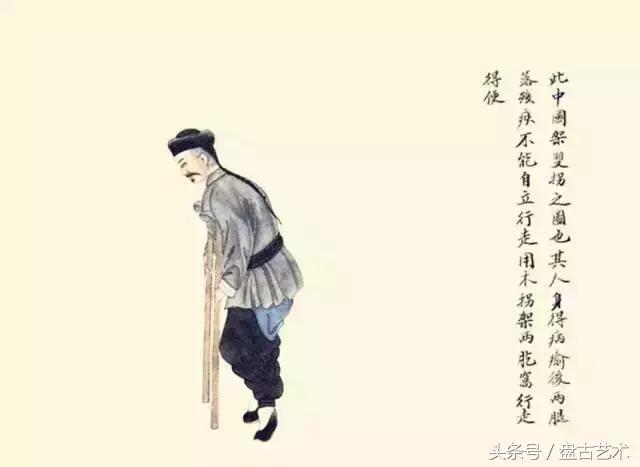 此中國架雙拐之圖也其人身得病癒後兩腿
落殘疾不能自立行走用木拐架兩肐窩行走
得便
头条号／盘古艺术